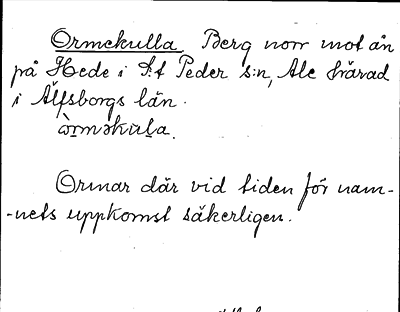 Ormekulla Berg norr mot ån
på Hede i S:t Peder s:n, Ale härad
i Älfsborgs län.
Ormar där vid tiden för nam-
-nets uppkomst säkerligen.